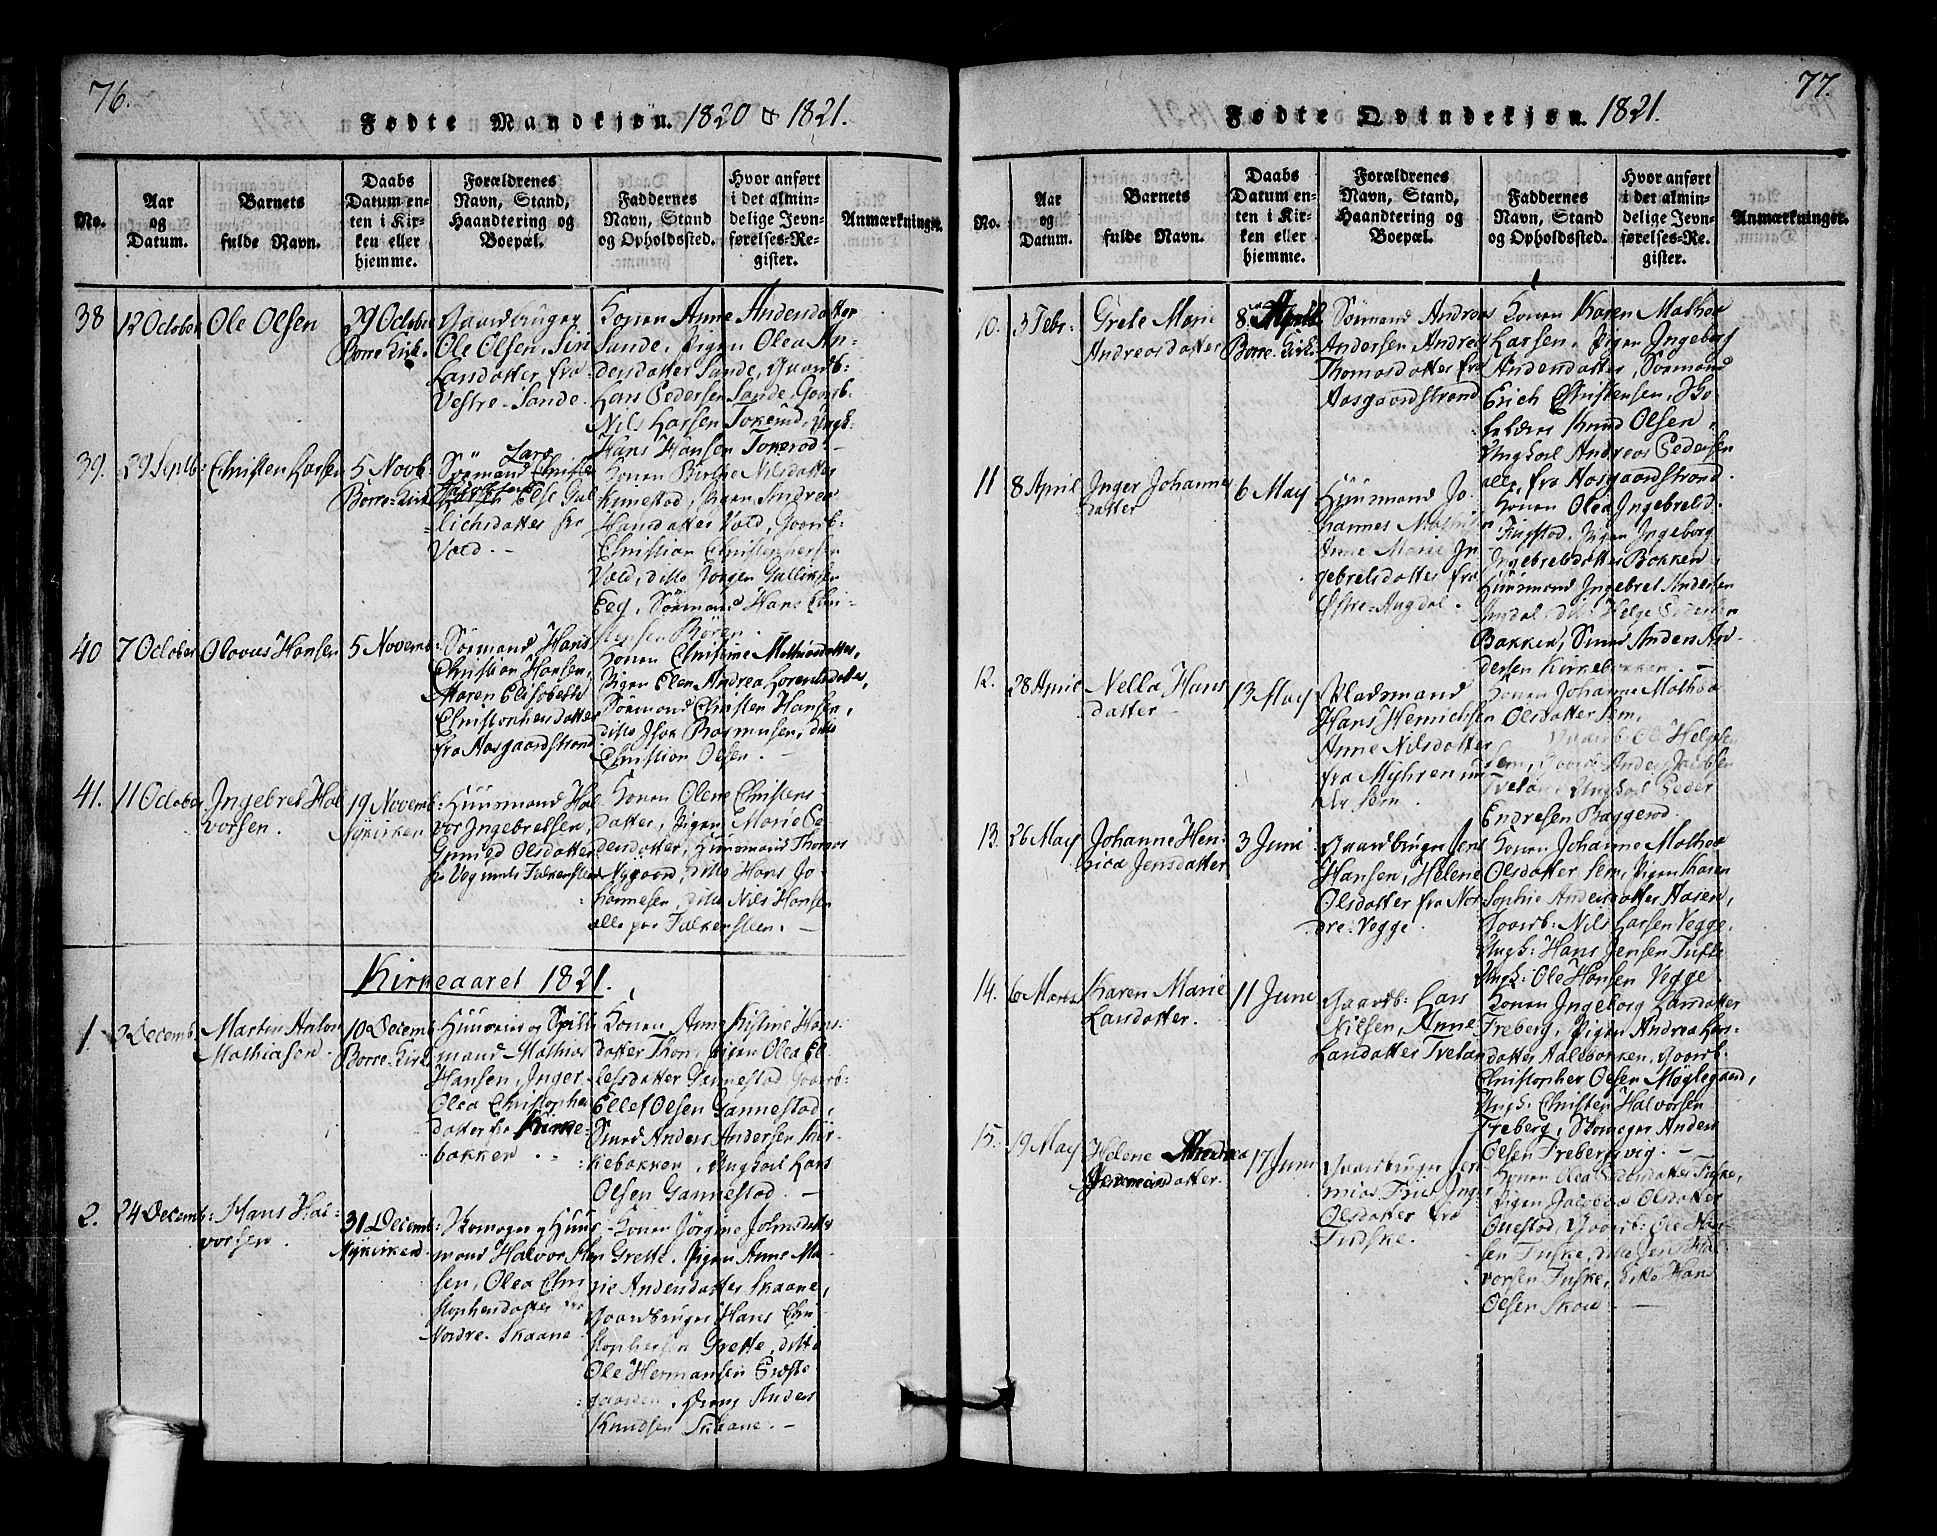 76.
Fødte Mandkjøn. 1820 & 1821.
No.
Aar
og
Datum.
Barnets
fulde Navn.
Daabs
Datum en-
ten i Kir-
ken eller
hjemme.
Forældrenes
Navn, Stand,
Haandtering og
Boepæl.
Faddernes
Navn, Stand
og Opholdssted.
Hvor anført
i det almin-
delige Jevn-
førelses-Re-
gister.
Anmærkninger.
38
12 October
Ole Olsen
29 October
Borre Kirk.
Gaardbruger
Ole Olsen, Siri
Larsdatter fra
Vestre-Sande.
Konen Anne Andersdatter
Sande, Pigen Olea An-
dersdatter Sande, Gaardb:
Lars Pedersen Sande, Gaardb-
Nils Larsen Tokerud, Ungk.
Hans Hansen Tokerod -
39.
29 Septb:
Christen Larsen
5 Novb:
Borre-Kirk
Lars
Sømand
Else Gul
lichsdatter fra
Vold. -
Konen Birthe Nilsdatter
Kimestad, Pigen Andrea
Hansdatter Vold, Gaardb-
Christian Christophersen
Vold, ditto Jørgen Gullichsen
Eeg, Sømand Hans Chri-
stensen Børen.
40
7 October
Olavus Hansen
5 Novemb:
Sømand Hans
Christian Hansen,
Maren Elisabeth
Christophersdatter
fra Aasgaardstrand
Konen Christine Mathiasdatter,
Pigen Elen Andrea Lorentsdatter,
Sømand Christen Hansen,
ditto Isak Rasmusen, ditto
Christian Olsen. -
41.
11 October
Ingebret Hal
vorsen.
19 Novemb:
Nykirken
Huusmand Hal
vor Ingebretsen,
Gunild Olsdatter
fr Veg under Falkensteen
Konen Olene Christens-
datter, Pigen Marie Pe
dersdatter, Huusmand Thomas
Nygaard, ditto Hans Jo-
hannesen, ditto Nils Hansen
alle paa Falkensteen. -
Kirkeaaret 1821.
1.
3 Decemb.
Marten Anton
Mathiasen.
10 Decemb
Borre-Kirk
Huusmand og Spille
mand Mathias
Hansen, Inger
Olea Christopher
datter fra Kirke-
bakken.
Konen Anne Kistine Hans-
datter Thon, Pigen Olea El-
lefsdatter Gannestad, Gaardb-
Ellef Olsen Gannestad,
Smed Anders Andersen Kir-
kebakken, Ungkarl Lars
Olsen Gannestad. -
2.
24 Decemb:
Hans Hal-
vorsen
31 Decemb:
Nykirken
Skomager og Huus
mand Halvor Han
sen, Olea Chri
stophersdatter fra
Nordre-Skaane
Konen Jørgine Johnsdatter
Grette, Pigen Anne Ma-
rie Andersdatter Skaane,
Gaardbruger Hans Chri
stophersen Grette, ditto
Ole Hermansen Prøste
gaarden, Dreng Anders
Knudsen Skaane. -
77.
Fødte Qvindekjøn. 1821.
No.
Aar
og
Datum.
Barnets
fulde Navn.
Daabs
Datum en-
ten i Kir-
ken eller
hjemme.
Forældrenes
Navn, Stand,
Haandtering og
Boepæl.
Faddernes
Navn, Stand
og Opholdssted.
Hvor anført
i det almin-
delige Jevn-
førelses-Re.
gister.
Anmærkninger.
10.
3 Febr:
Grete Marie
Andreasdatter
8 April
Borre-Kirk:
Sømand Andreas
Andersen, Andrea
Thomasdatter fra
Aasgaardstrand
Konen Karen Mathea
Larsen, Pigen Ingeborg
Andersdatter, Sømand
Erich Christensen,
Knud Olsen,
Ungkarl Andreas Pedersen
alle fra Aasgaardstrand.
11
8 April
Inger Johannes
datter
6 May
Huusmand Jo-
hannes Mathis
Anne Marie In
gebretsdatter fra
Østre-Augdal.
Konen Olea Ingebretsd.
Pigen Ingeborg
Ingebretsdatter Bakken,
Huusmand Ingebret Andersen
Augdal, ditto Helge Pedersen
Bakken, Smed Anders An-
dersen Kirkebakken. -
12.
28 April
Nella Hans
datter
13 May
Pladsmand
Hans Henrichsen
Anne Nilsdatter
fra Myhren un
der Sem.
Konen Johanne Mathea
Olsdatter Sem,
Gaardb: Ole Helgesen
Sem, Gaardb: Anders Jacobsen
Tveten, Ungkarl Peder
Endresen Baggerød.
13.
26 May
Johanne Hen-
rica Jensdatter
3 Juni
Gaardbruger Jens
Hansen, Helene
Olsdatter fra Nor-
dre-Vegge.
Konen Johanne Mathea
Olsdatter Sem, Pigen Karen
Sophie Andersdatter Aasen,
Gaardb: Nils Larsen Vegge,
Ungk: Hans Jensen Tufte
Ungk: Ole Hansen Vegge.
14.
6 Marts
Karen Marie
Larsdatter.
11 Juni
Gaardb: Lars
Nilsen, Anne
Larsdatter Tvetan
Konen Ingeborg Larsdatter
Freberg, Pigen Andrea Lars-
datter Aalsbakken, Gaardb.
Christopher Olsen Møglegaard,
Ungk: Christen Halvorsen
Freberg, Skomager Anders
Olsen Frebergsvig. -
15.
19 May
Helene Andrea
Jermiasdatter.
17 Juni
Gaardbruger Jer
mias Friis, Inger
Olsdatter fra
Fuske.
Konen Olea Fuske,
Pigen Jacobea Olsdatter
Gaardb: Ole Han
sen Fuske, ditto Jens Hal
vorsen Fuske, ditto Hans
Olsen Skou -